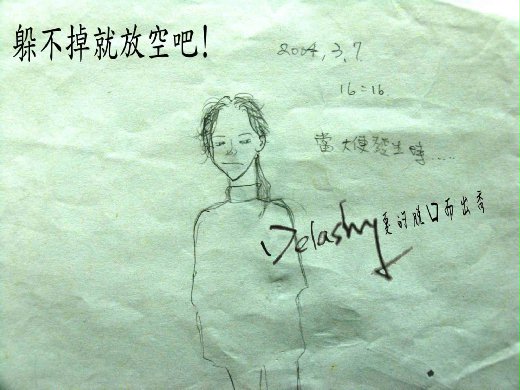 躲不掉就放空吧!
2004,3,7.
16:16
當大便發生時....
Delashy 夏的脫口而出秀